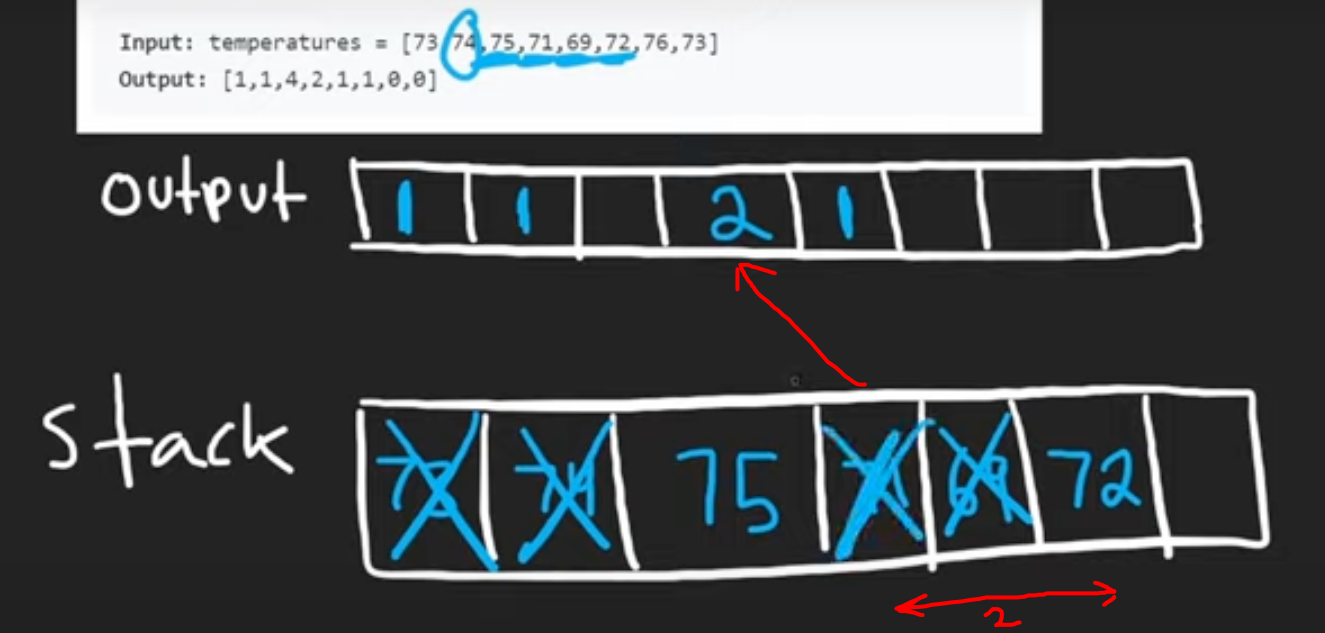 Input: temperatures = [73,74,75,71,69,72,76,73]
Output: [1,1,4,2,1,1,0,0]
output 1 1 2 1
Stack 73 74 75 71 69 72
2